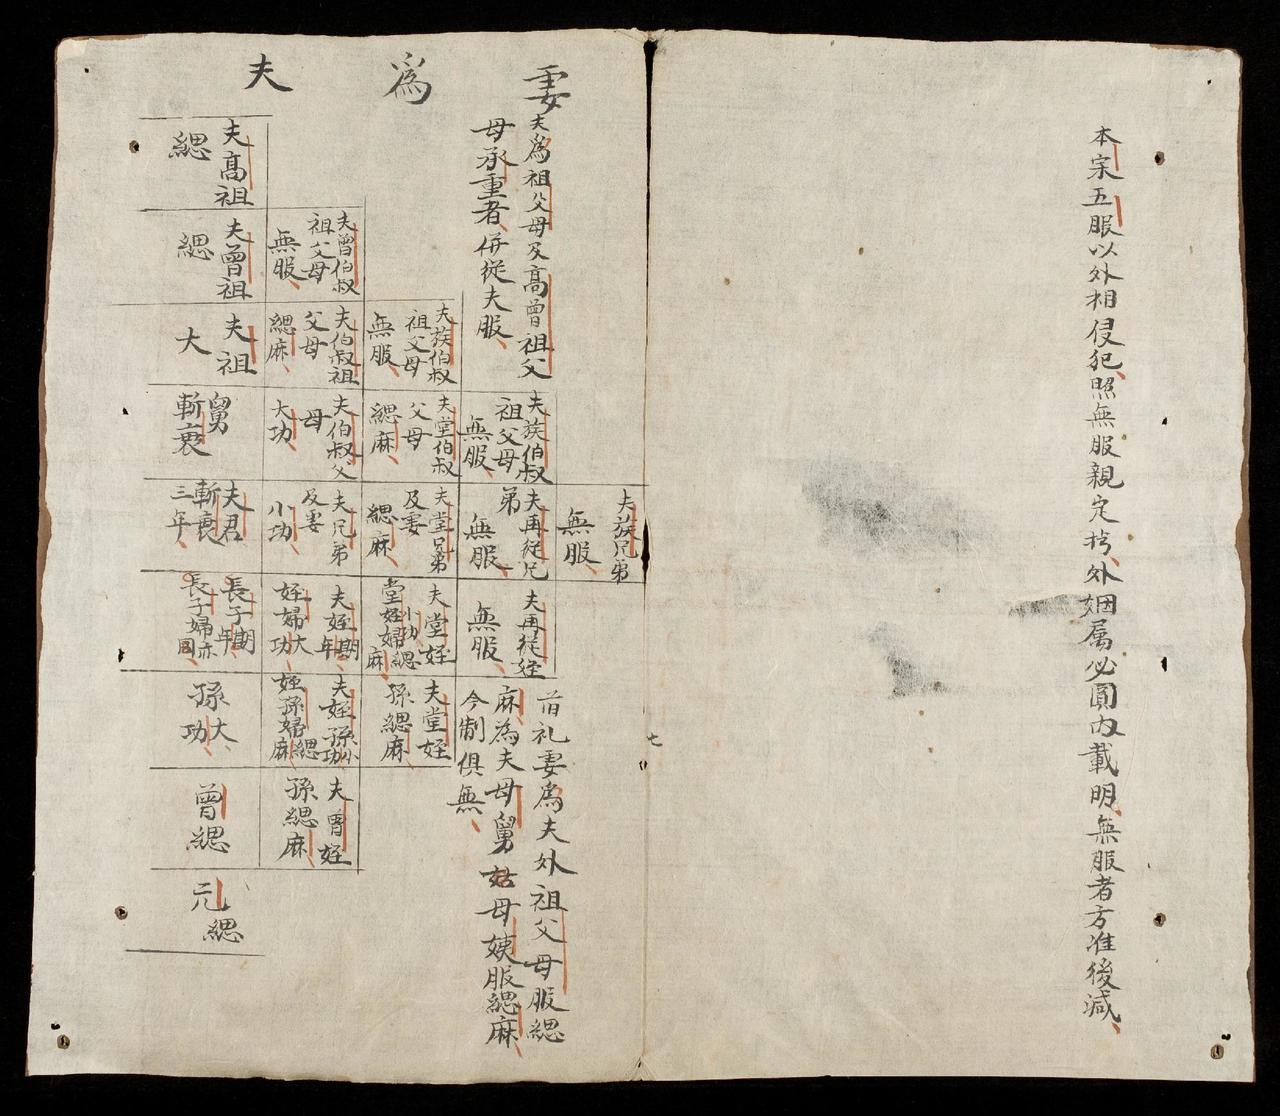 本宗五服以外相侵犯照無服親定枔外姻属必圓內載明無服者方准後減
妻為夫
夫為祖父母及高曾祖父
母承重者併從夫服
夫族兄弟
無服
夫族伯叔
祖父母
無服
夫再從兄
弟
無服
夫再從姪
無服
夫族伯叔
祖父母
無服
夫堂伯叔
父母
緦麻
夫堂兄弟
及妻
緦麻
夫堂姪
小功
堂姪婦緦
麻
夫堂姪
孫緦麻
夫曾伯叔
祖父母
無服
夫伯叔祖
父母
緦麻
夫伯叔父
母
大功
夫兄弟
及妻
小功
夫姪期
年
姪婦大
功
夫姪孫小
功
姪孫婦緦
麻
夫曾姪
孫緦麻
夫高祖
緦
夫曾祖
緦
夫祖
大
舅
斬衰
夫君
斬衰
三年
長子期
年
長子婦亦
同
孫大
功
曾緦
元緦
礼妻為夫外祖父母服緦
麻為夫母舅姑母姨服緦麻
今制俱無
七